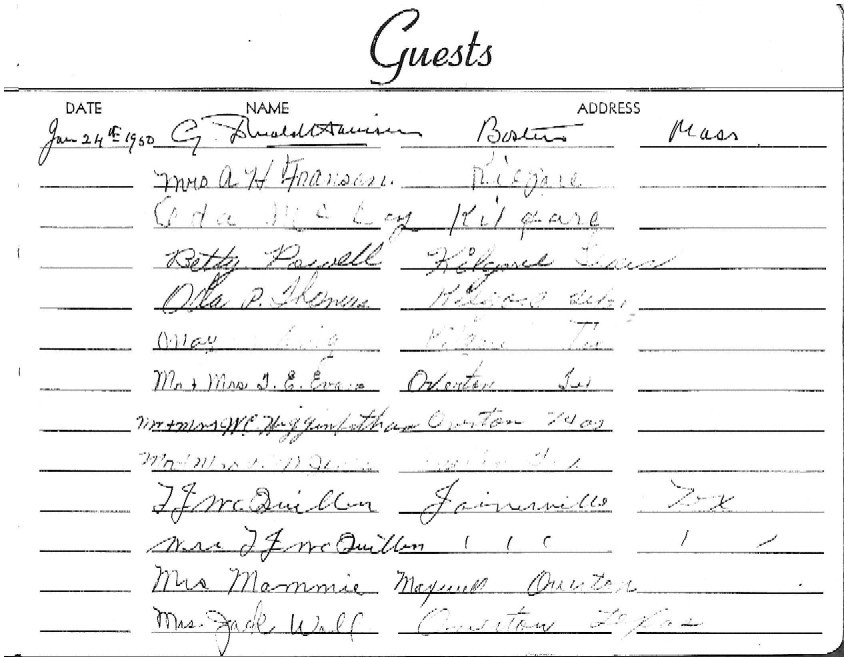 Guests
DATE NAME ADDRESS
Jan 24th 1950 G. Donald Harrison Boston Mass.
Mrs A H Franson. Kilgore
Kilgore
Betty Powell Kilgore Texas
Ola P. Thomas Kilgore
May King Kilgore Tex
Mr + Mrs T. E. Evans Overton Tex
Mr + Mrs W.C. Higginbotham Overton
Mr + Mrs
T J McQuillen Joinerville Tex
Mrs T J McQuillen ( ( ( ( /
Mrs Mammie Maxwell Overton
Mrs. Jack Wall Overton Texas